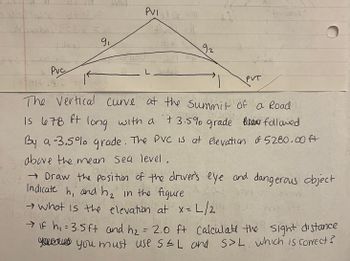 PVI
g₁
g₂
PVC
L
PVT
The Vertical curve at the Summit of a Road
Is 678 ft long with a +3.5% grade followed
By a -3.5% grade. The PVC is at elevation of 5280.00 ft
above the mean sea level.
→ Draw the position of the driver's eye and dangerous object
Indicate h₁ and h₂ in the figure
→ what is the elevation at x = L/2
→ if h₁ = 3.5 ft and h₂ = 2.0 ft calculate the sight distance
you must use S≤L and S>L. which is correct?